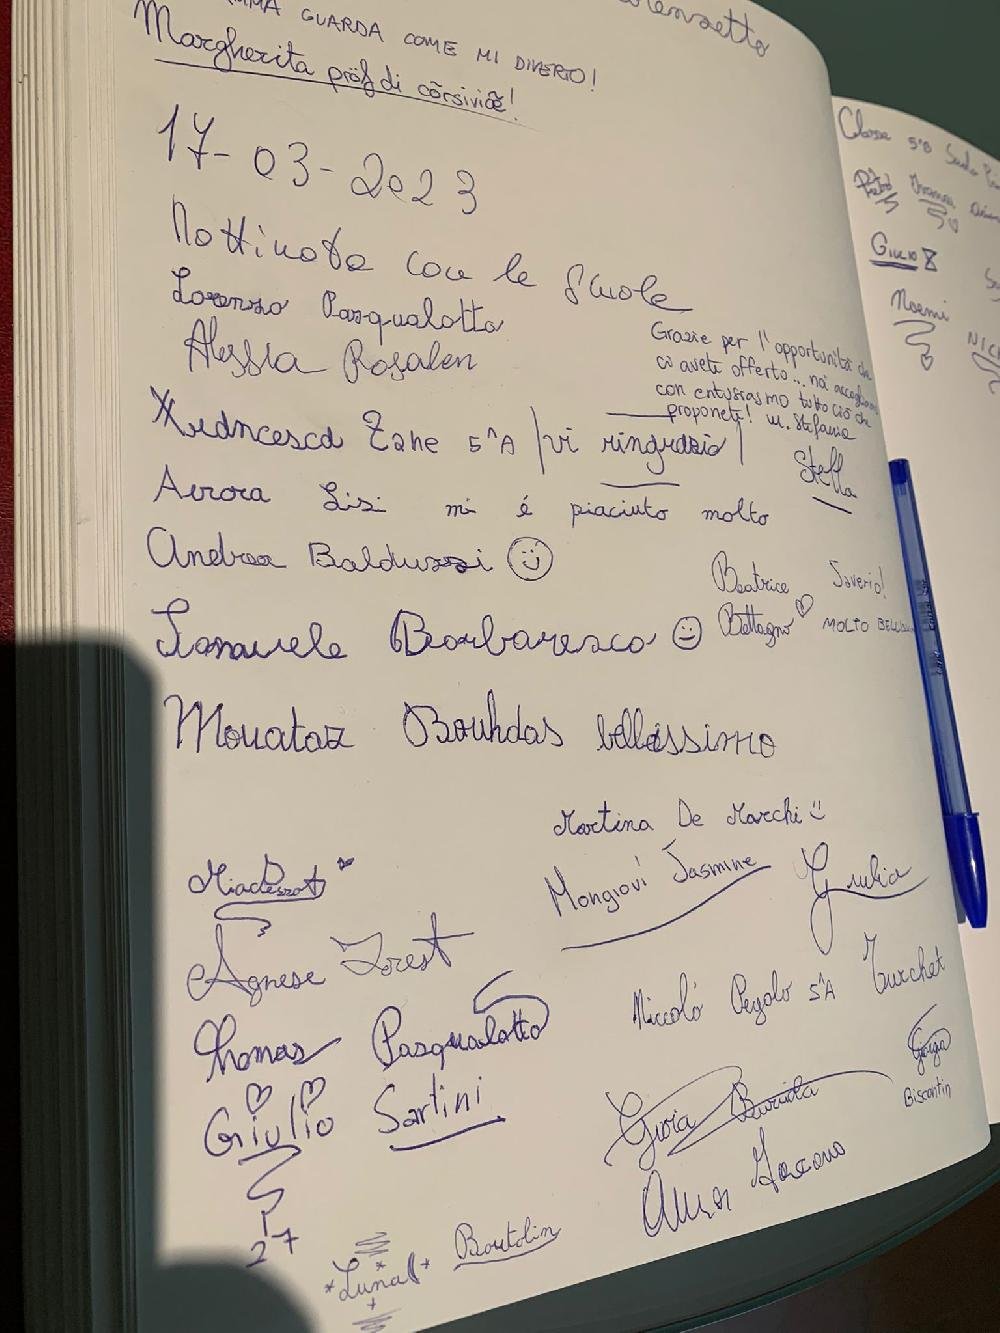 GUARDA COME MI DIVERTO!
Margherita prof di cörsivœ!
17-03-2023
Mattinata con le Scuole
Lorenzo Pasqualotto
Alessia Rosalen
Grazie per l'opportunità che
ci avete offerto... noi accogliamo
con entusiasmo tutto ciò che
proponete! m. Stefania
Francesca Zane 5^A vi ringrazio
Stella
Aurora Lisi mi é piaciuto molto
Andrea Balduzzi
Beatrice
Bottagno
Saverio!
MOLTO
Samuele Barbaresco
Mouataz Bouhdas bellissimo
Martina De Marchi
Mongiovì Jasmine
Giulia
Agnese Forest
Thomas Pasqualotto
Niccoló Pegolo 5^A
Turchet
Giulio Sartini
27
Gioia
Giorgia
Biscontin
*Luna*
Bortolin
Classe 5^B
GIULIO
Noemi